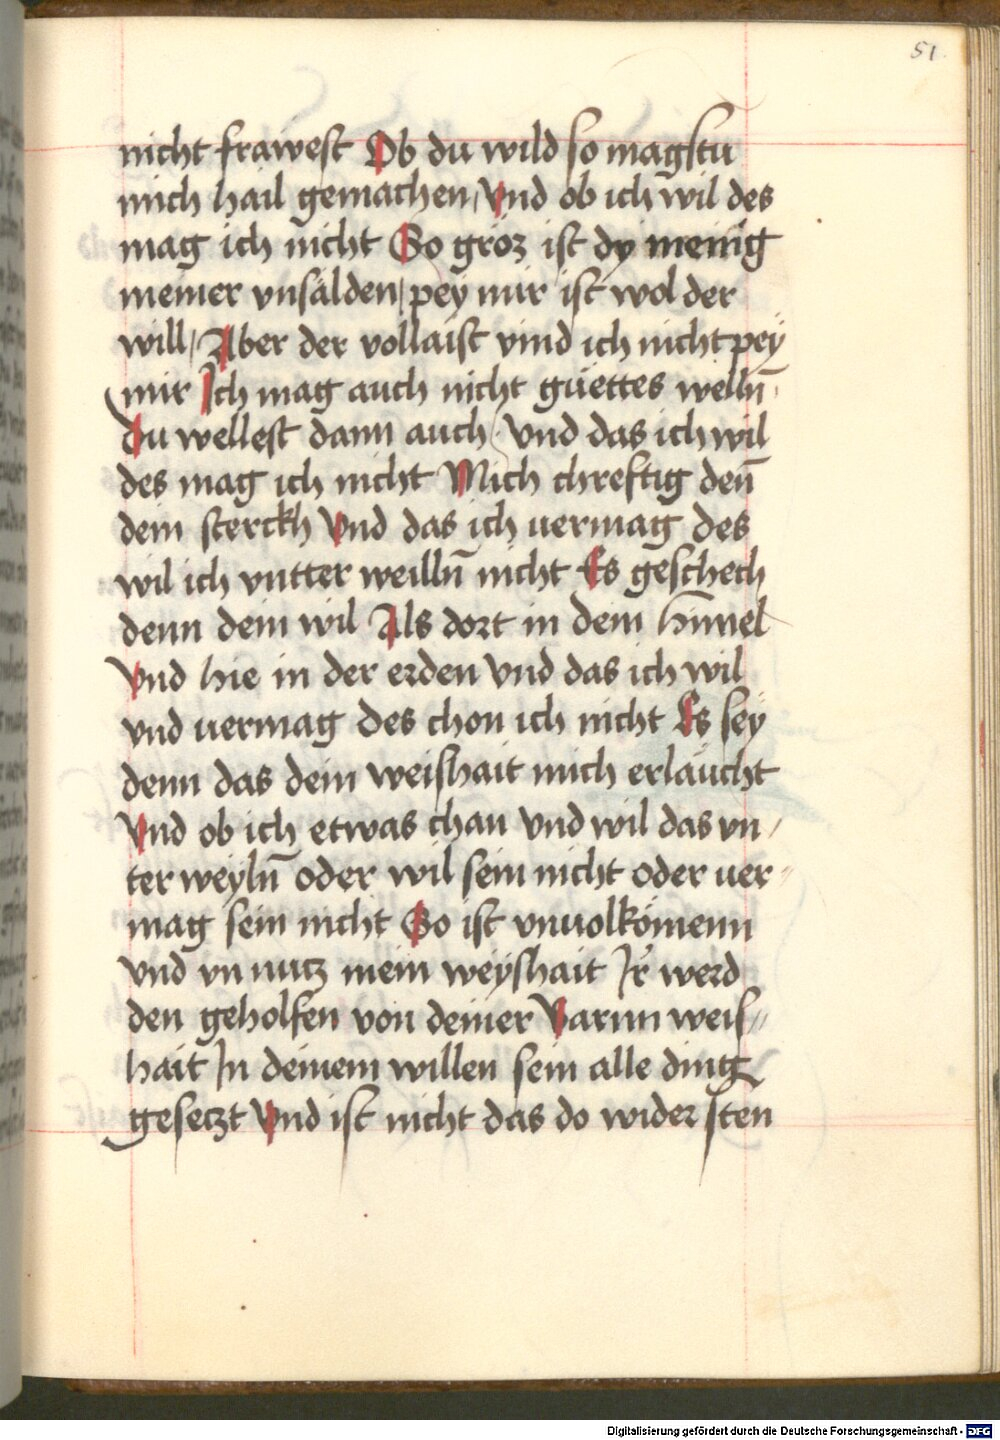 51.
nicht frawest Ob du wild so magstu
mich hail gemachen, Vnd ob ich wil des
mag ich nicht So gröz ist dy menig
meiner vnsälden, pey mir ist wol der
will, Aber der vollaist vind ich nicht pey
mir Ich mag auch nicht güettes welln̄
du wellest dann auch Vnd das ich wil
des mag ich nicht Mich chreftig den̄
dein sterckh Vnd das ich uermag des
wil ich vntter weilln̄ nicht Es geschech
denn dein wil Als dort in dem himel
Vnd hie in der erden Vnd das ich wil
vnd uermag des chon ich nicht Es sey
denn das dein weishait mich erläucht
Vnd ob ich etwas chan Vnd wil das vn/
ter weyln̄ oder wil sein nicht oder uer-
mag sein nicht So ist vnuolkömenn
Vnd vn nutz mein weyshait Ir werd
den geholfen von deiner Varnn weis//
hait In deinem willen sein alle ding
gesetzt Vnd ist nicht das do wider sten
Digitalisierung gefördert durch die Deutsche Forschungsgemeinschaft - DFG